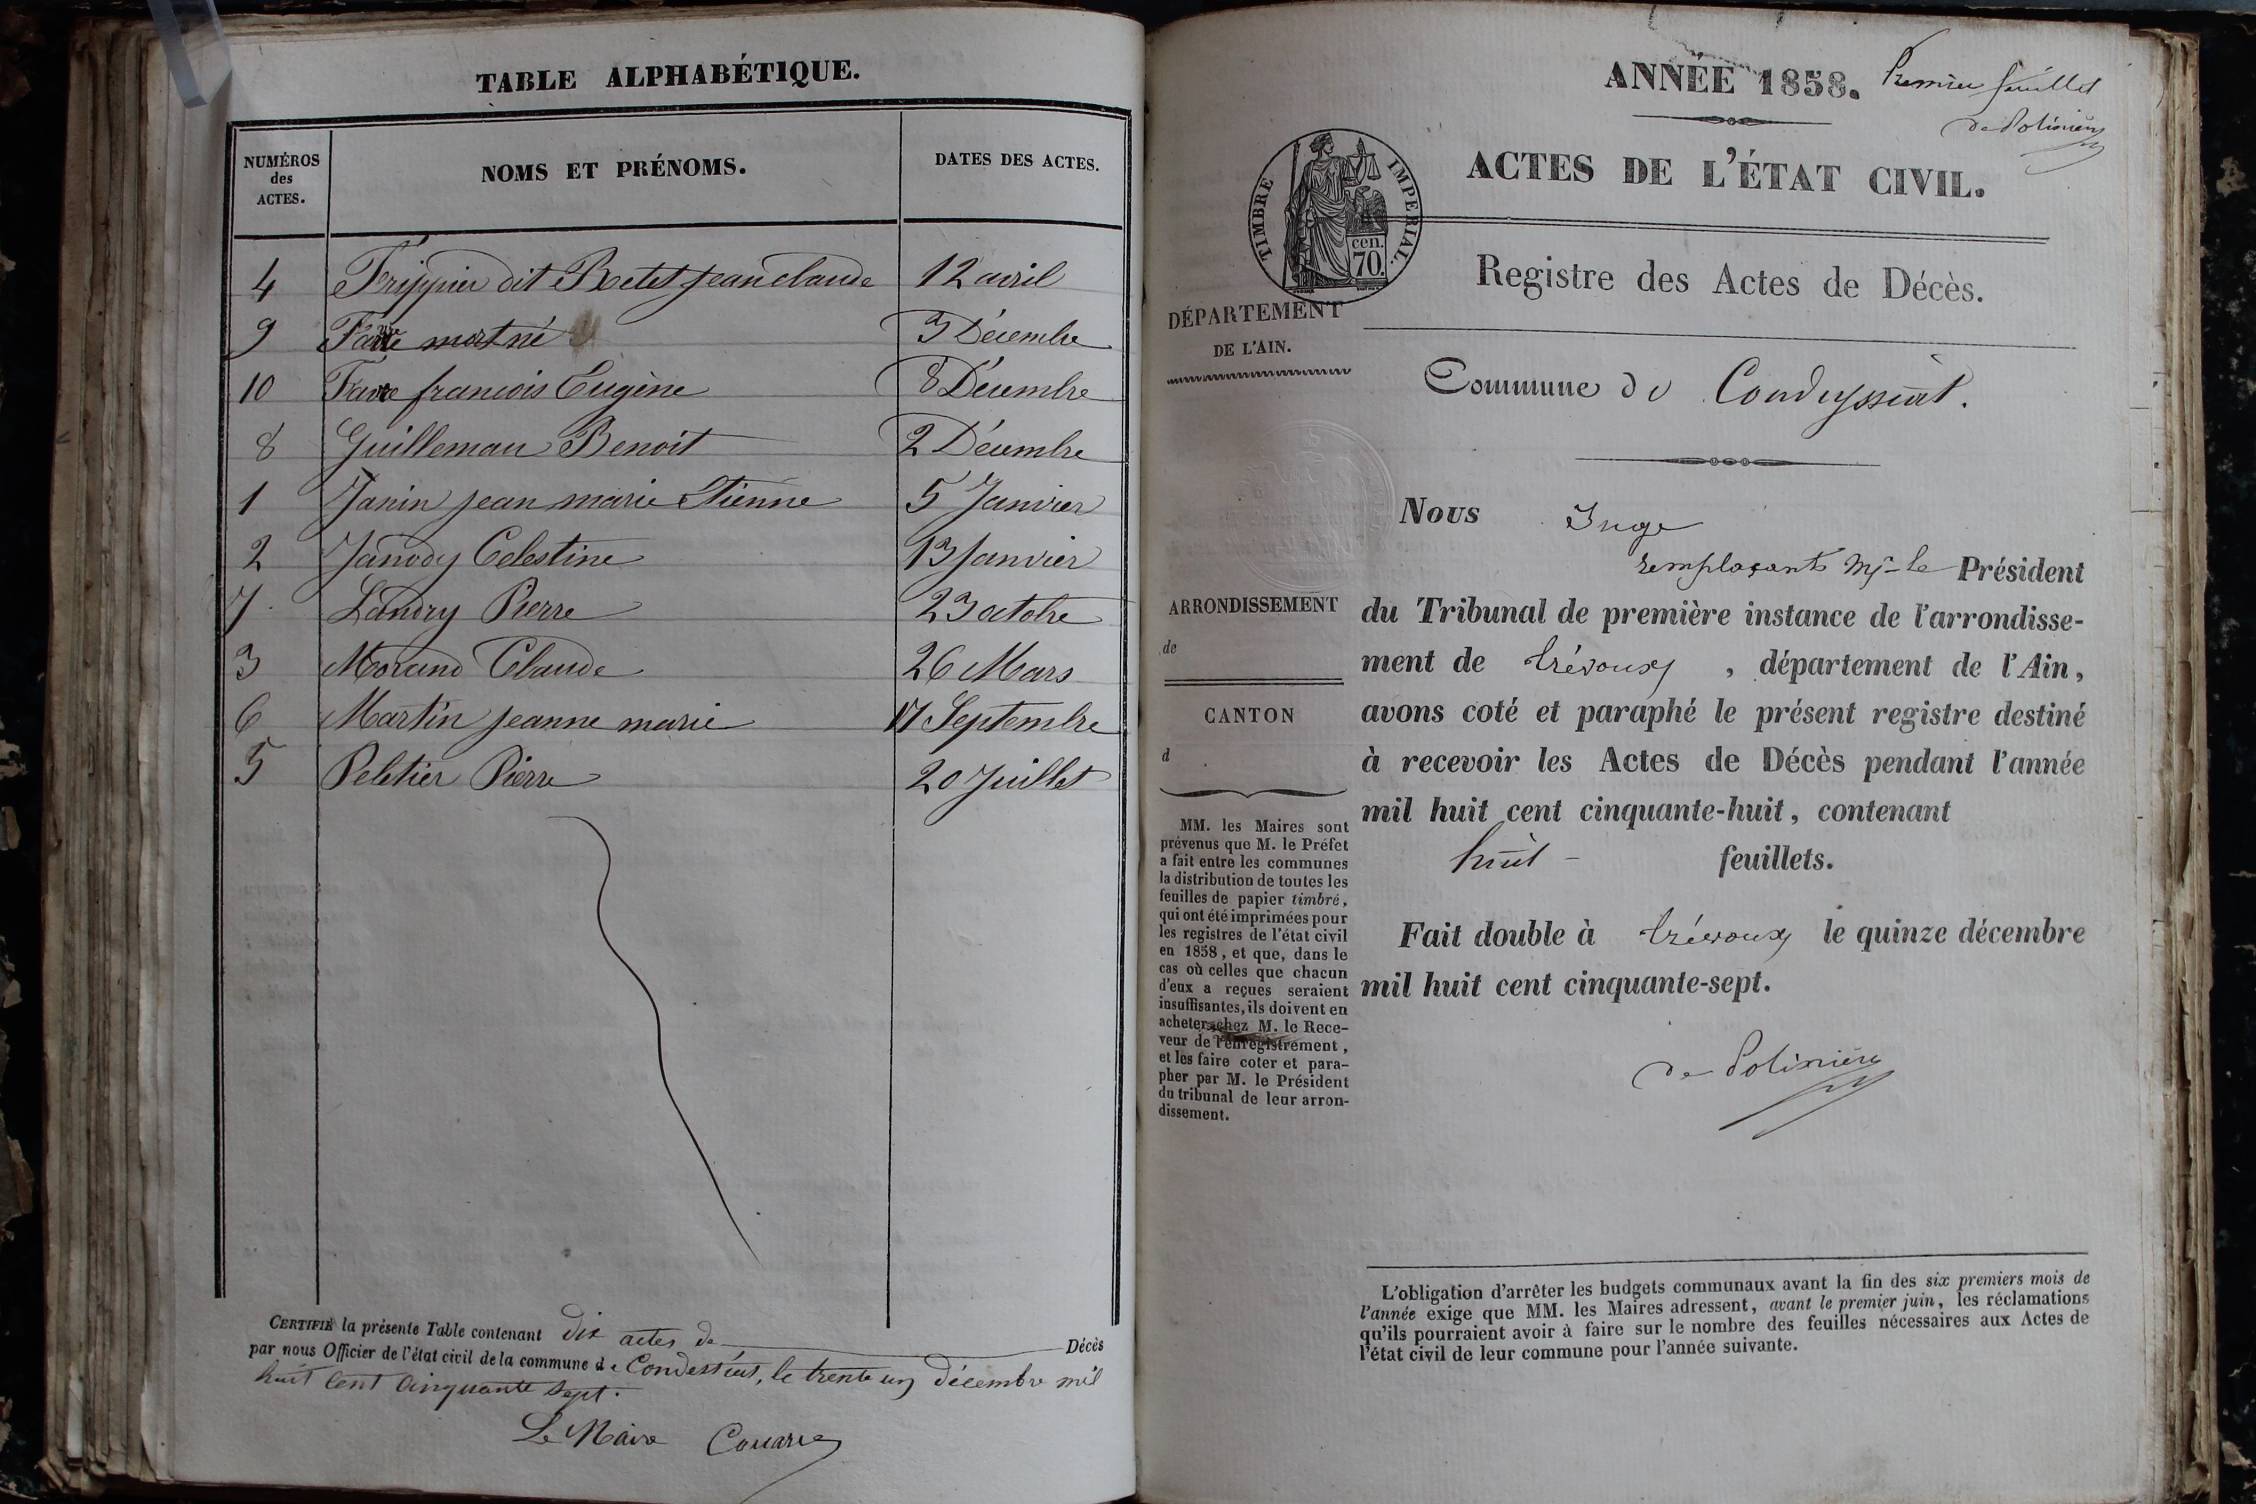 TABLE ALPHABÉTIQUE.
NUMÉROS des ACTES. NOMS ET PRÉNOMS. DATES DES ACTES.
4 Frippier dit Betet jean claude 12 avril
9 mort né 3 Décembre
10 françois Eugène 8 Décembre
8 Guilleman Benoit 2 Décembre
1 Janin jean marie Etienne 5 Janvier
2 Janody Celestine 13 Janvier
7 Landry Pierre 23 octobre
3 Morand Claude 26 Mars
6 Martin jeanne marie 17 Septembre
5 Peletier Pierre 20 Juillet
CERTIFIÉ la présente Table contenant dix actes de Décès
par nous Officier de l'état civil de la commune de Condessiat, le trente un décembre mil
huit cent cinquante sept.
Le Maire
ANNÉE 1858. Premier feuillet
de Polinière
ACTES DE L'ÉTAT CIVIL.
TIMBRE IMPERIAL.
cen.
70.
Registre des Actes de Décès.
DÉPARTEMENT
DE L'AIN.
Commune de Condeyssiat.
Nous Juge
remplaçant Mr le Président
du Tribunal de première instance de l'arrondisse-
ment de trévoux, département de l'Ain,
avons coté et paraphé le présent registre destiné
à recevoir les Actes de Décès pendant l'année
mil huit cent cinquante-huit, contenant
huit feuillets.
Fait double à trévoux le quinze décembre
mil huit cent cinquante-sept.
de Polinière
ARRONDISSEMENT
de
CANTON
d
MM. les Maires sont
prévenus que M. le Préfet
a fait entre les communes
la distribution de toutes les
feuilles de papier timbré,
qui ont été imprimées pour
les registres de l'état civil
en 1858, et que, dans le
cas où celles que chacun
d'eux a reçues seraient
insuffisantes, ils doivent en
acheter chez M. le Rece-
veur de l'enregistrement,
et les faire coter et para-
pher par M. le Président
du tribunal de leur arron-
dissement.
L'obligation d'arrêter les budgets communaux avant la fin des six premiers mois de
l'année exige que MM. les Maires adressent, avant le premier juin, les réclamations
qu'ils pourraient avoir à faire sur le nombre des feuilles nécessaires aux Actes de
l'état civil de leur commune pour l'année suivante.